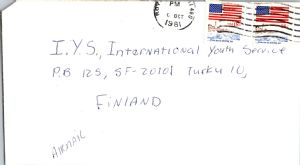 PM
OCT
1981
I.Y.S., International Youth Service
P.B 125, SF-20101 Turku 10,
FINLAND
AIRMAIL